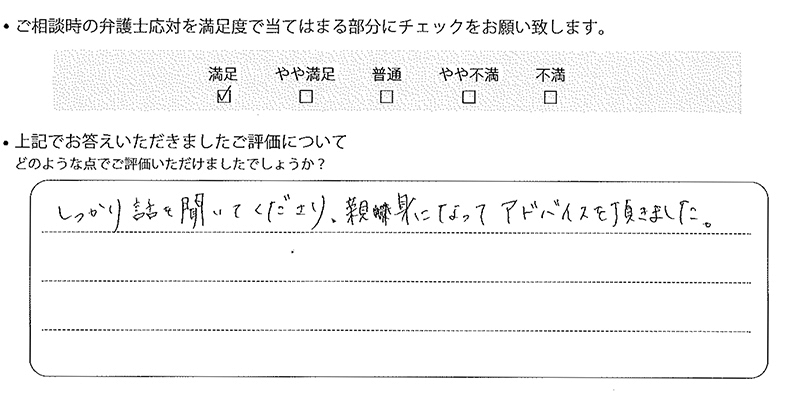 • ご相談時の弁護士応対を満足度で当てはまる部分にチェックをお願い致します。
満足 やや満足 普通 やや不満 不満
☑ ☐ ☐ ☐ ☐
• 上記でお答えいただきましたご評価について
どのような点でご評価いただけましたでしょうか？
しっかり話を聞いてくださり、親身になってアドバイスを頂きました。